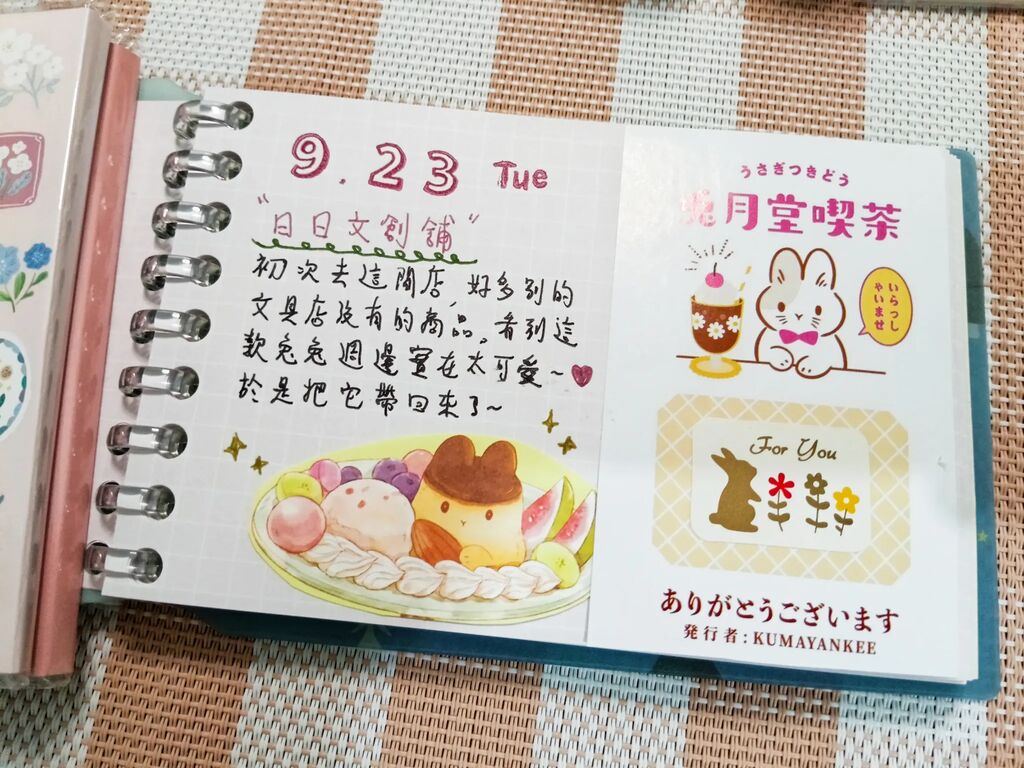 9.23 Tue
"日日文創舖"
初次去這間店,好多別的
文具店沒有的商品,看到這
款兔兔週邊實在太可愛~
於是把它帶回來了~
うさぎつきどう
兎月堂喫茶
いらっし
ゃいませ
For You
ありがとうございます
発行者:KUMAYANKEE